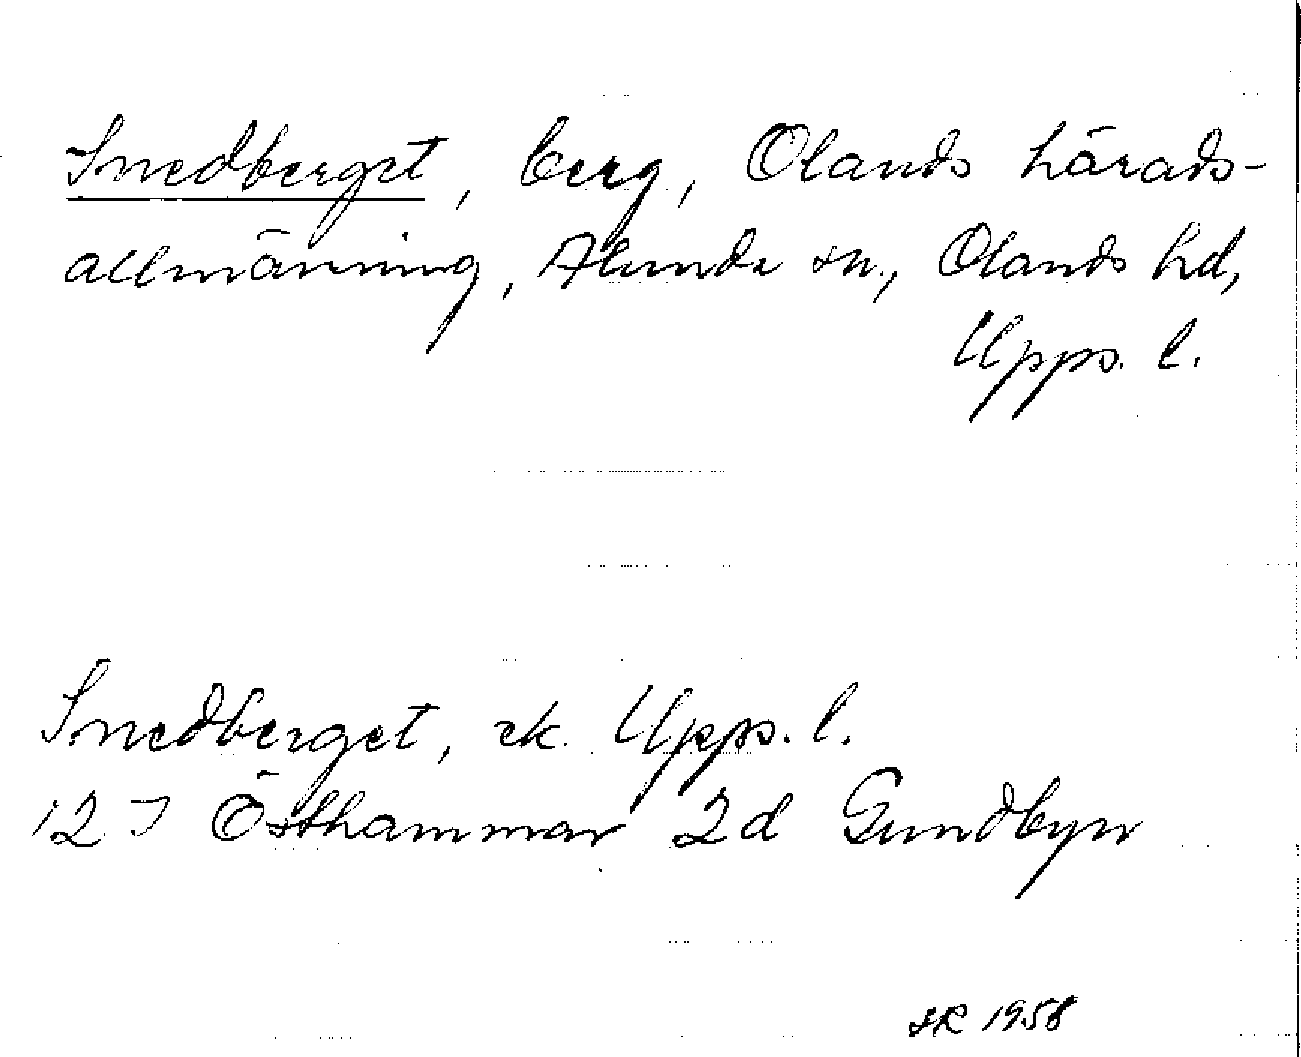 Snedberget, berg, Olands härads-
allmänning, Alunda sn., Olands hd,
Upps. l.
Snedberget, ek. Upps. l.
12 I Östhammar 2d Gundbyn
SR 1958